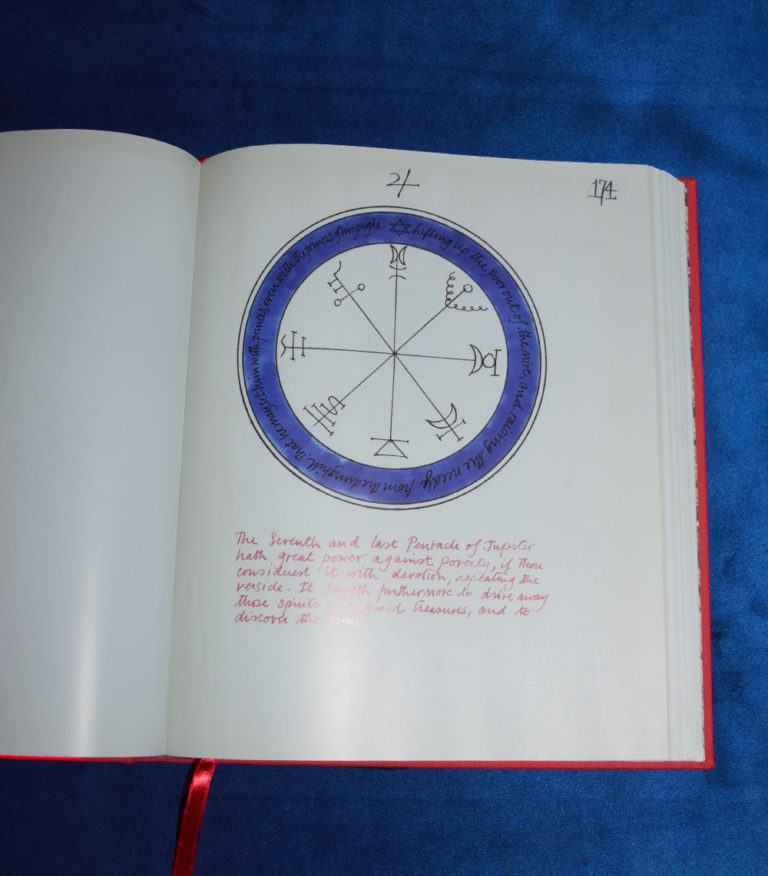 ♃
174
lifting up the poor out of the mire, and raising the needy from the dunghill, that he may set him with princes, even with the princes of his people
The Seventh and last Pentacle of Jupiter
hath great power against poverty, if thou
considerest it with devotion, repeating the
versicle. It serveth furthermore to drive away
those spirits who guard treasures, and to
discover the same